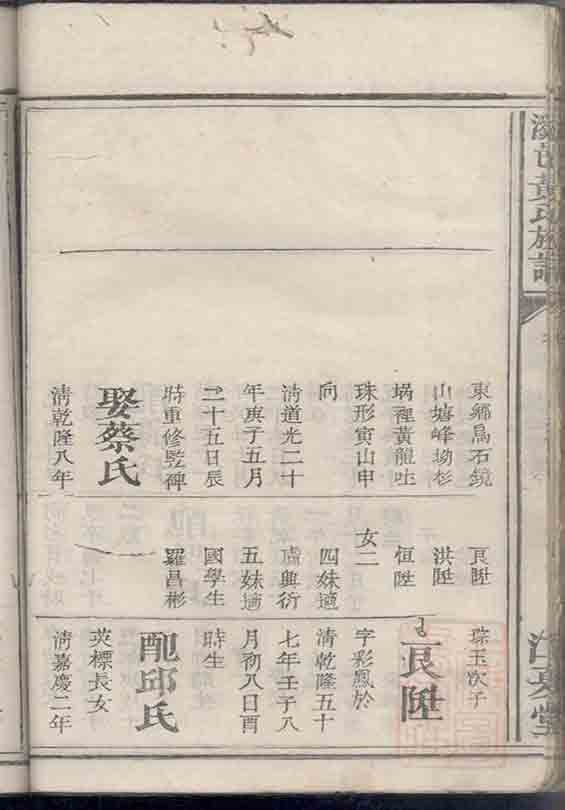 黃氏族譜
江夏堂
東鄉烏石鏡
山塘峰坳杉
堝裡黃龍吐
珠形寅山申
向
清道光二十
年庚子五月
二十五日辰
時重修豎碑
娶蔡氏
清乾隆八年
良陞
洪陞
恒陞
女二
四妹適
盧興衍
五妹適
國學生
羅昌彬
琮玉次子
良陞
字彩鳳於
清乾隆五十
七年壬子八
月初八日酉
時生
配邱氏
英標長女
清嘉慶二年